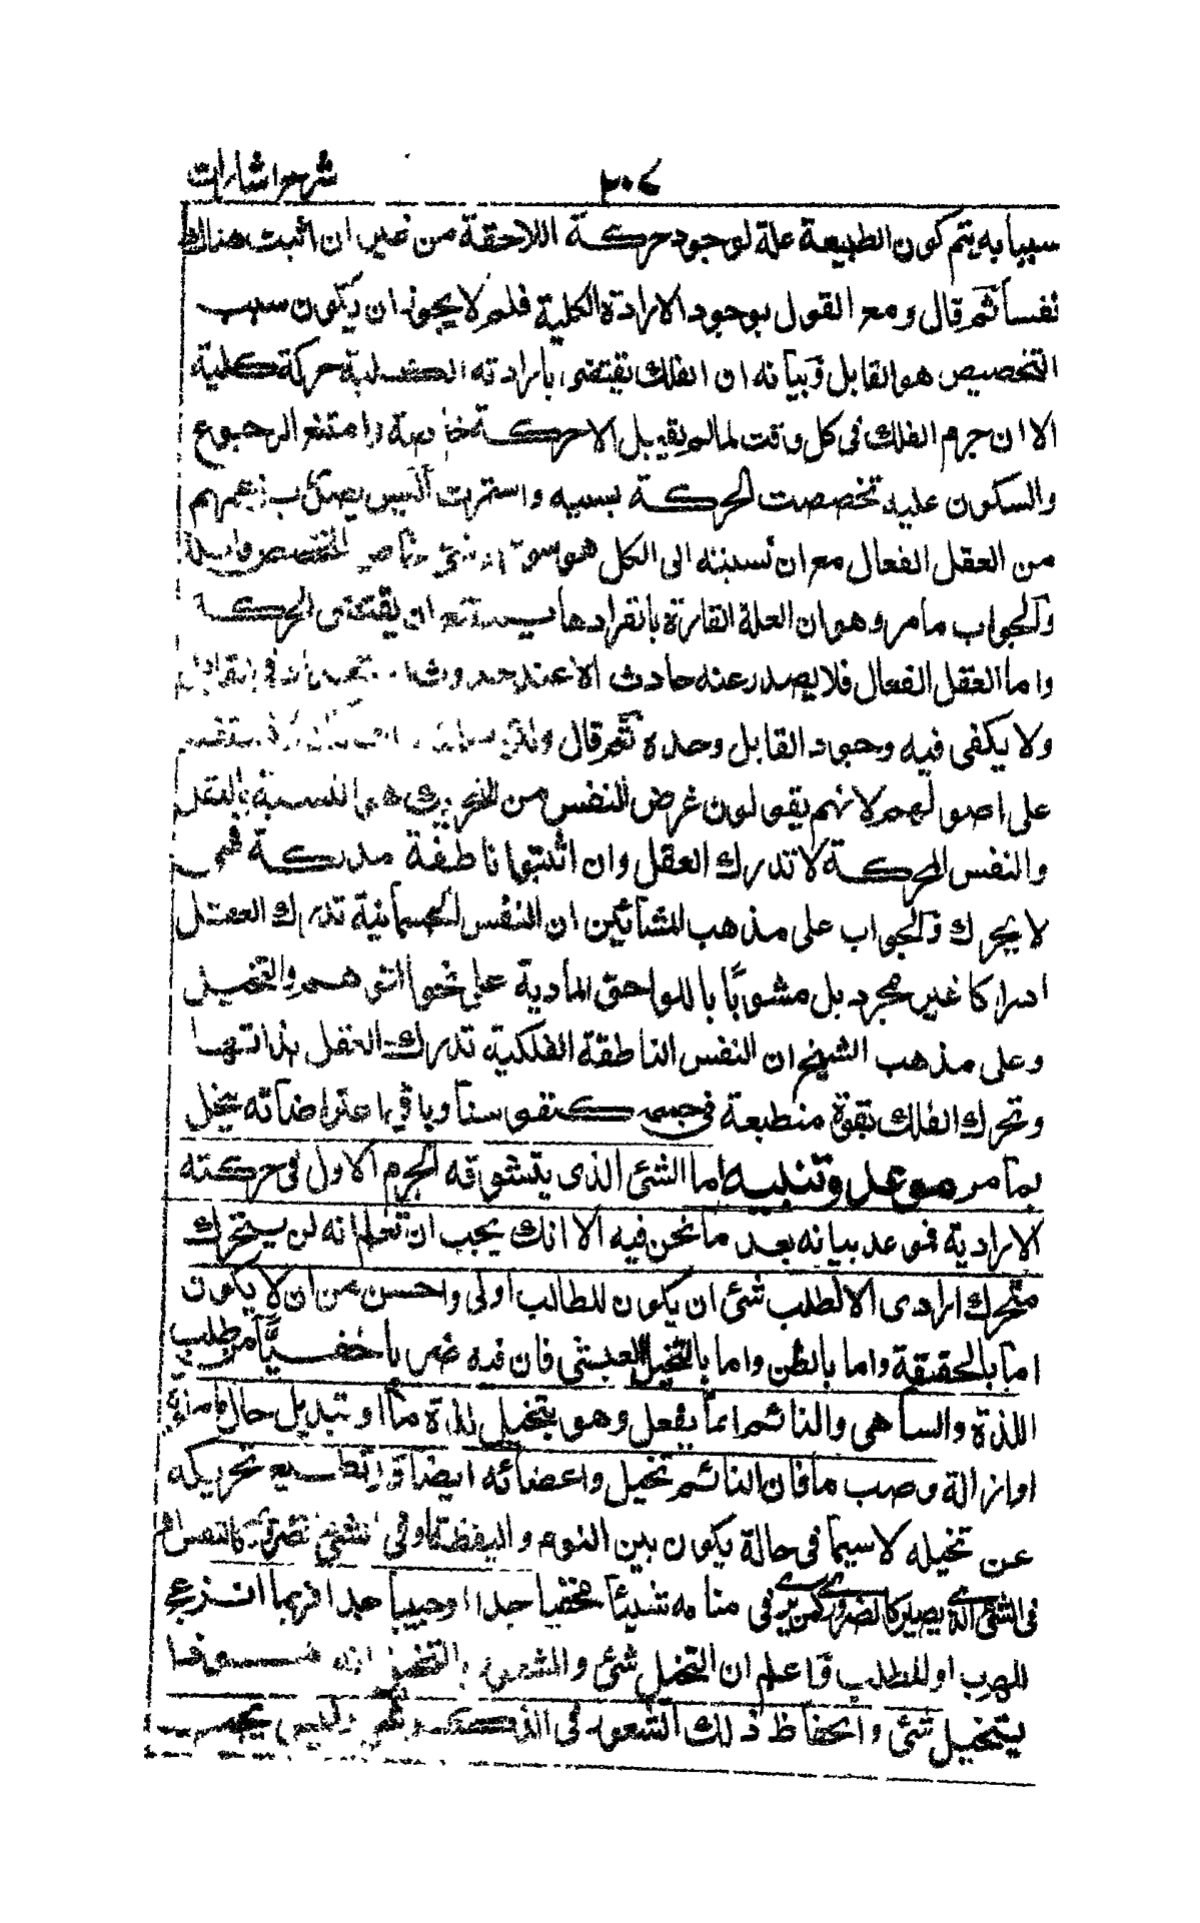 ٢٠٤ شرح اشارات
سببا به يتم كون الطبيعة علة لوجود حركة اللاحقة من غير ان اثبت هناك
نفسا ثم قال ومع القول بوجود الارادة الكلية فلم لا يجوز ان يكون سبب
التخصيص هو القابل وبيانه ان الفلك يقتضى بارادته الكلية حركة كلية
الا ان جرم الفلك فى كل وقت لما لم يقبل الا حركة خاصة وامتنع الرجوع
والسكون عليه تخصصت الحركة بسببه واستمرت أليس يصدر زعمهم
من العقل الفعال مع ان نسبته الى الكل هو سواء المخصص قابله
والجواب ما مر وهو ان العلة القارة بانفرادها يمتنع ان يقتضى الحركة
واما العقل الفعال فلا يصدر عنه حادث الا عند حدوث
ولا يكفى فيه وجود القابل وحده ثم قال ولئن
على اصولهم لانهم يقولون غرض النفس من التحريك هو التشبه بالعقل
والنفس المحركة لا تدرك العقل وان اثبتوا ناطقة مدركة فهى
لا يحرك والجواب على مذهب المشائين ان النفس الجسمانية تدرك العقل
ادراكا غير مجرد بل مشوبا باللواحق المادية على نحو التوهم والتخيل
وعلى مذهب الشيخ ان النفس الناطقة الفلكية تدرك العقل بذاتها
وتحرك الفلك بقوة منطبعة فى جسمه كنفوسنا وباقى اعتراضاته ينحل
بما مر موعد وتنبيه اما الشئ الذى يتشوقه الجرم الاول فى حركته
الارادية فموعد بيانه بعد ما نحن فيه الا انك يجب ان تعلم انه لن يتحرك
متحرك ارادى الا لطلب شئ ان يكون للطالب اولى واحسن من ان لا يكون
اما بالحقيقة واما بالظن واما بالتخيل العبثى فان فيه ضربا خفيا من طلب
اللذة والساهى والنائم انما يفعل وهو يتخيل لذة ما او تبديل حال ما
او ازالة وصب ما فان النائم تخيل واعضائه ايضا قد تطيع تحريكه
عن تخيله لا سيما فى حالة يكون بين النوم واليقظة او فى الشئ الضرورى كالتنفس او
فى الشئ الذى يصير كالضرورى كمن يرى فى منامه شيئا مخيفا جدا او حبيبا جدا فربما انزعج
للهرب او للطلب فاعلم ان التخيل شئ والشعور بالتخيل انه هو ذا
يتخيل شئ وانحفاظ ذلك الشعور فى الذكر شئ وليس يجب